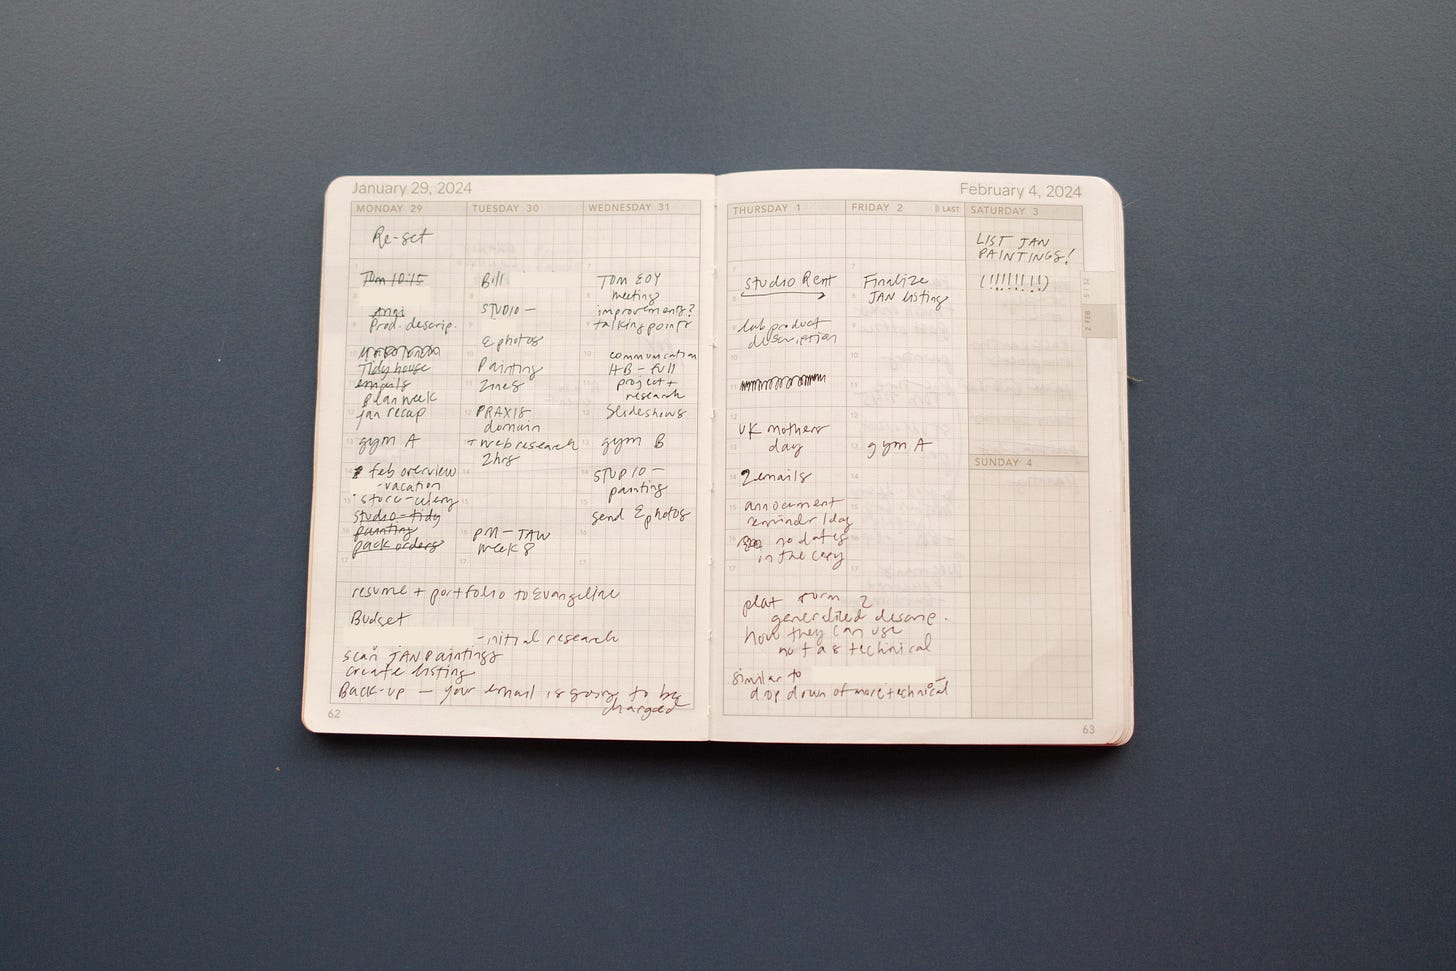 January 29, 2024
MONDAY 29
Re-set
Tom 10:15
Angi
Prod. descrip.
Tidy house
emails
plan week
jan recap
gym A
feb overview
-vacation
studio-tidy
painting
pack orders
TUESDAY 30
Bill
STUDIO -
photos
Painting
Zines
PRAXIS
domain
+ web research
2hrs
PM - TAW
week 8
WEDNESDAY 31
TOM EOY
meeting
improvements?
talking points
communication
AB - full
project +
research
slideshows
gym B
STUDIO -
painting
send photos
resume + portfolio to Evangeline
Budget
- initial research
scan JAN paintings
create listing
Back-up - your email is going to be
charged
62
February 4, 2024
THURSDAY 1
studio Rent
product
description
UK mothers
day
2 emails
annoucment
reminder 1 day
no dates
in the copy
FRIDAY 2
LAST
Finalize
JAN listing
gym A
SATURDAY 3
LIST JAN
PAINTINGS!
(!!!!!!!!)
SUNDAY 4
plat form 2
generalized descrip.
how they can use
not as technical
similar to
drop down of more technical
2 FEB
63